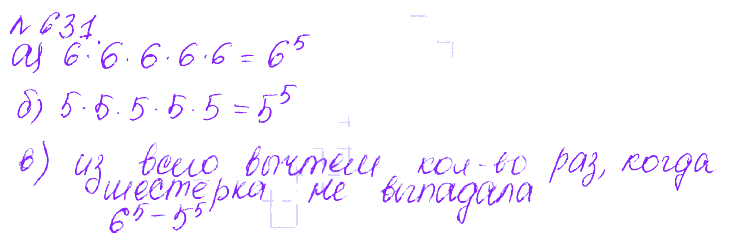 № 631.
а) 6 · 6 · 6 · 6 · 6 = 6⁵
б) 5 · 5 · 5 · 5 · 5 = 5⁵
в) из всего вычтем кол-во раз, когда
шестёрка не выпадала
6⁵ - 5⁵